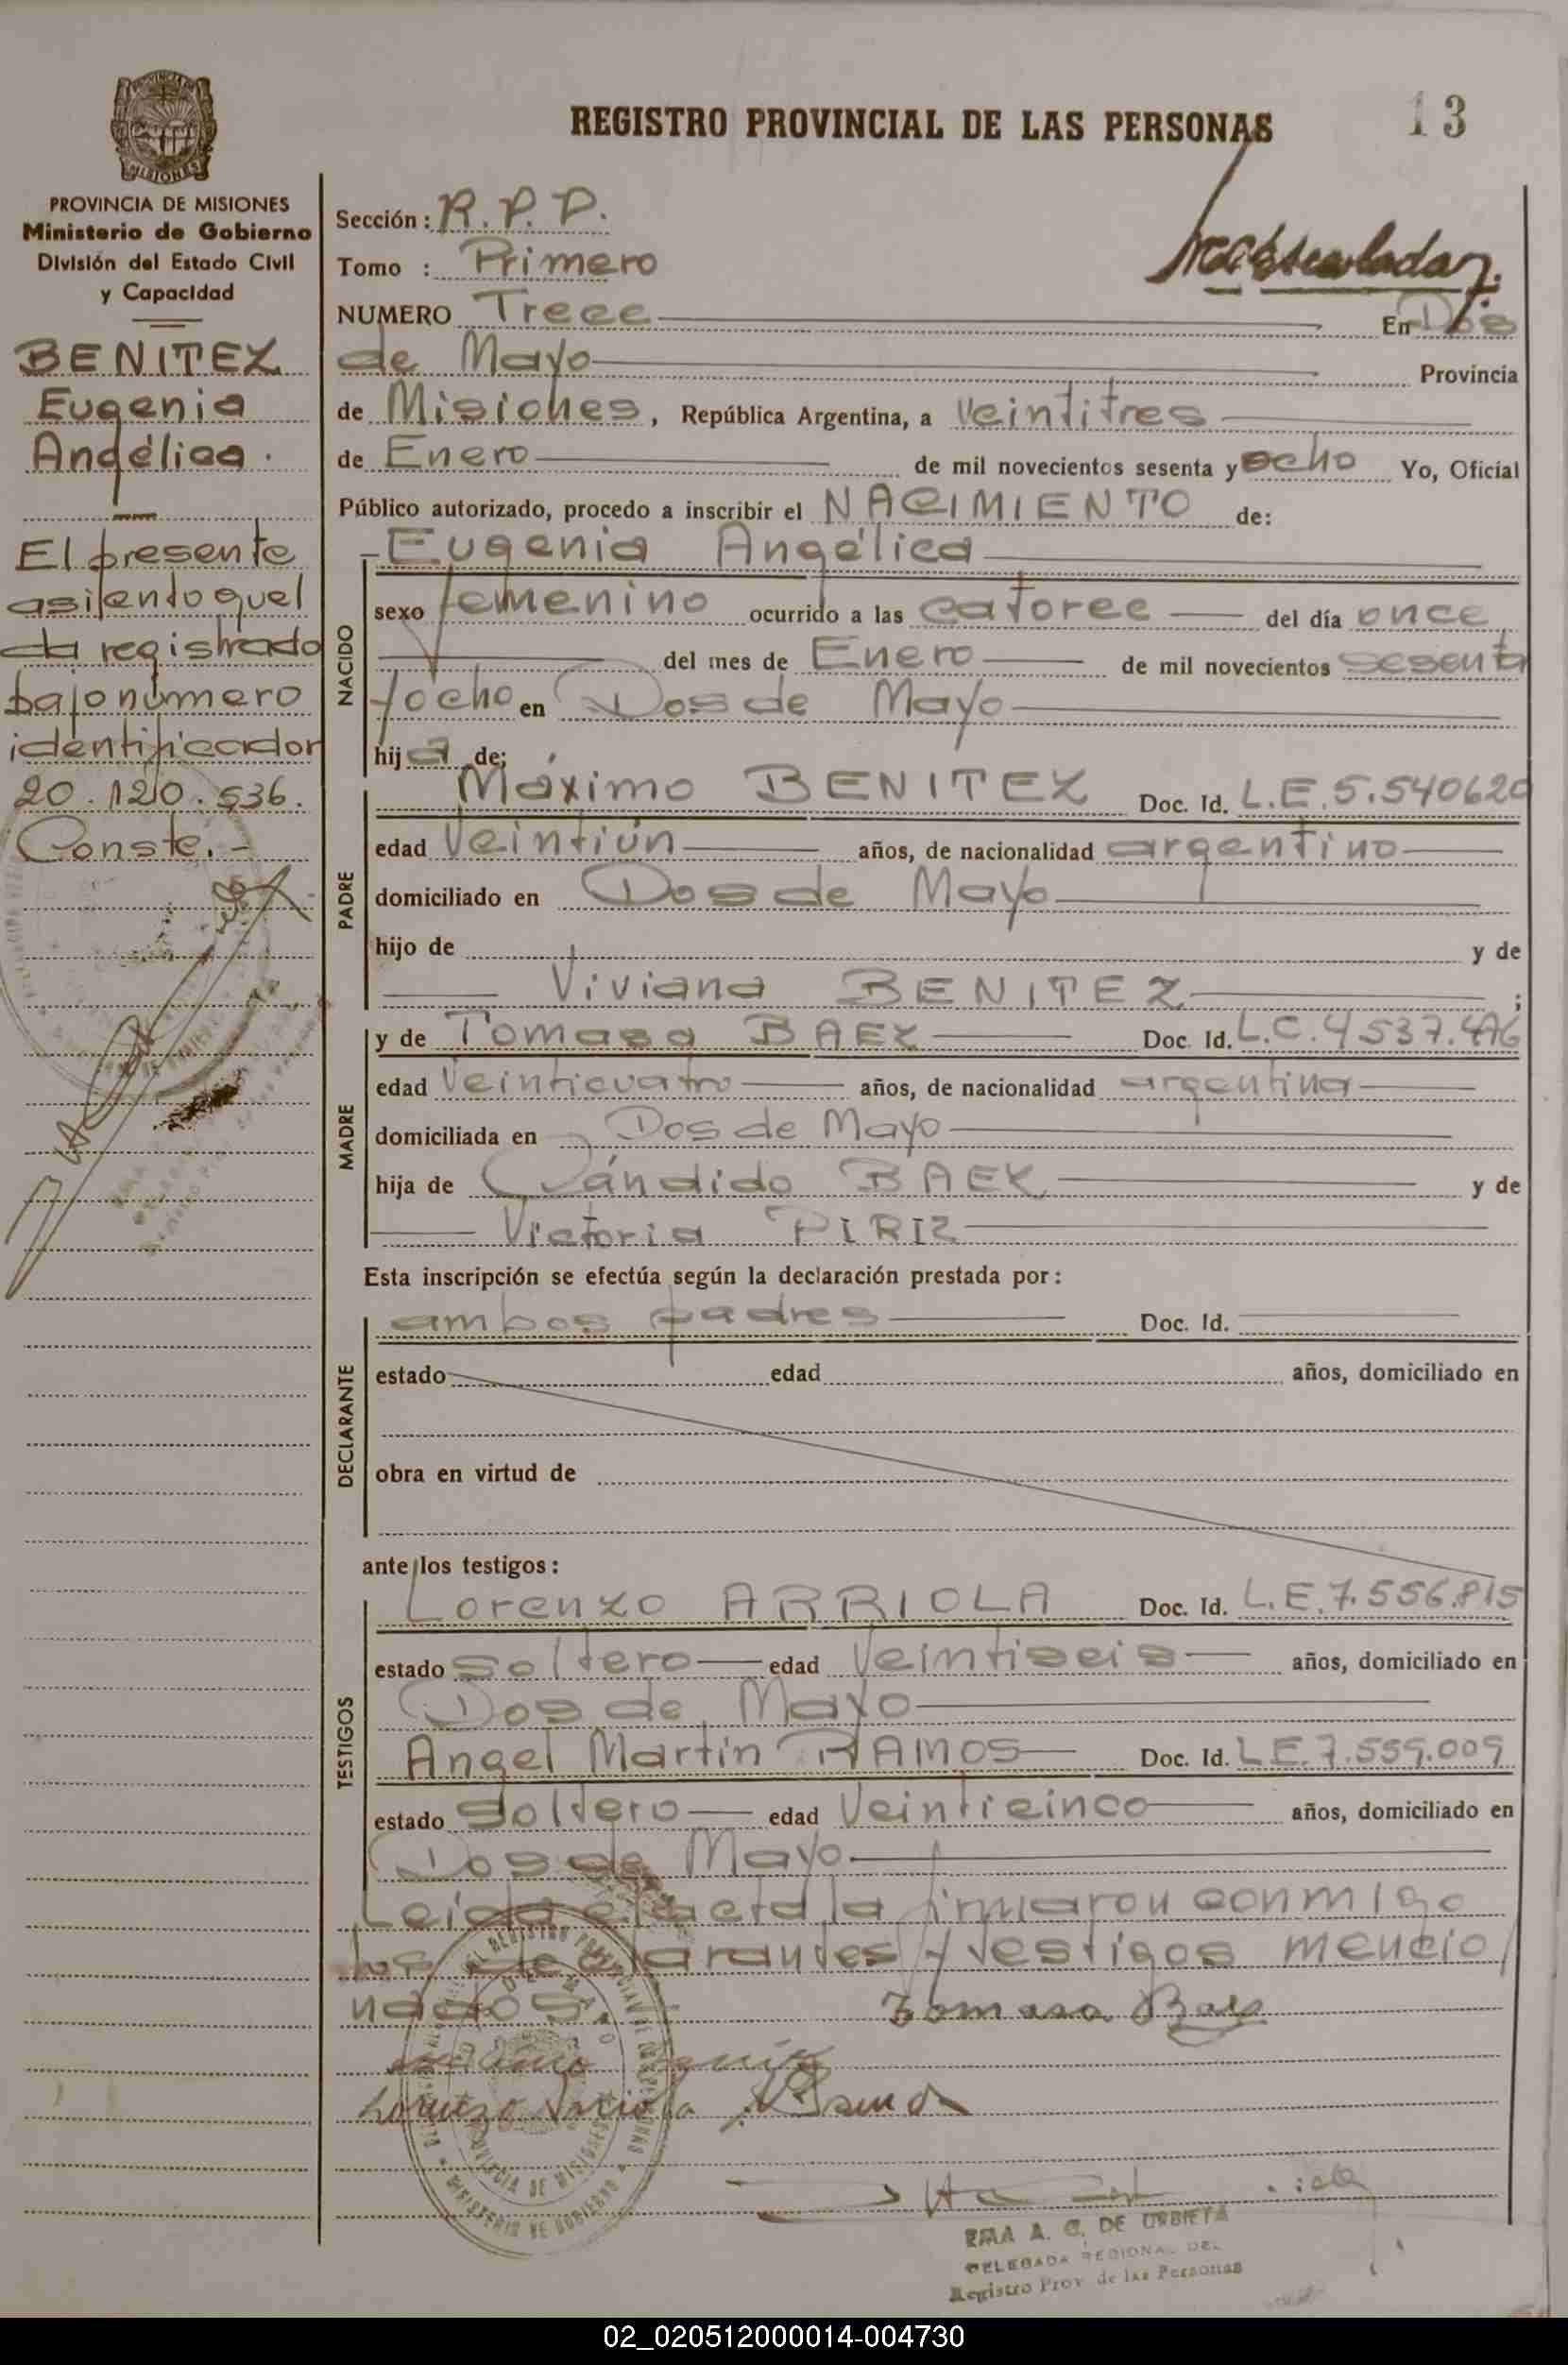 REGISTRO PROVINCIAL DE LAS PERSONAS
13
MISIONES
PROVINCIA DE MISIONES
Ministerio de Gobierno
División del Estado Civil
y Capacidad
BENITEZ
Eugenia
Angélica.
El presente
asiento quel
da registrado
bajo número
identificador
20.120.536.
Conste.-
Sección: R.P.P.
Tomo : Primero
NUMERO Trece En Dos
de Mayo Provincia
de Misiones, República Argentina, a veintitres
de Enero de mil novecientos sesenta y ocho Yo, Oficial
Público autorizado, procedo a inscribir el NACIMIENTO de:
NACIDO
Eugenia Angélica
sexo femenino ocurrido a las catorce del día once
del mes de Enero de mil novecientos sesenta
y ocho en Dos de Mayo
hija de;
PADRE
Máximo BENITEZ Doc. Id. L.E.5.540620
edad Veintiún años, de nacionalidad argentino
domiciliado en Dos de Mayo
hijo de y de
Viviana BENITEZ ;
MADRE
y de Tomasa BAEZ Doc. Id. L.C.4537.
edad Veinticuatro años, de nacionalidad argentina
domiciliada en Dos de Mayo
hija de Cándido BAEZ y de
Victoria PIRIZ
Esta inscripción se efectúa según la declaración prestada por:
DECLARANTE
ambos padres Doc. Id.
estado edad años, domiciliado en
obra en virtud de
ante los testigos:
TESTIGOS
Lorenzo ARRIOLA Doc. Id. L.E.7.556.815
estado soltero edad Veintiseis años, domiciliado en
Dos de Mayo
Angel Martín RAMOS Doc. Id. L.E.7.559.009
estado soltero edad Veinticinco años, domiciliado en
Dos de Mayo
Leida el acta la firmaron conmigo
los declarantes y testigos mencio
nados.
Tomasa Baez
Lorenzo Arriola
A. C. DE URBIETA
DELEGADA REGIONAL DEL
Registro Prov de las Personas
02_020512000014-004730